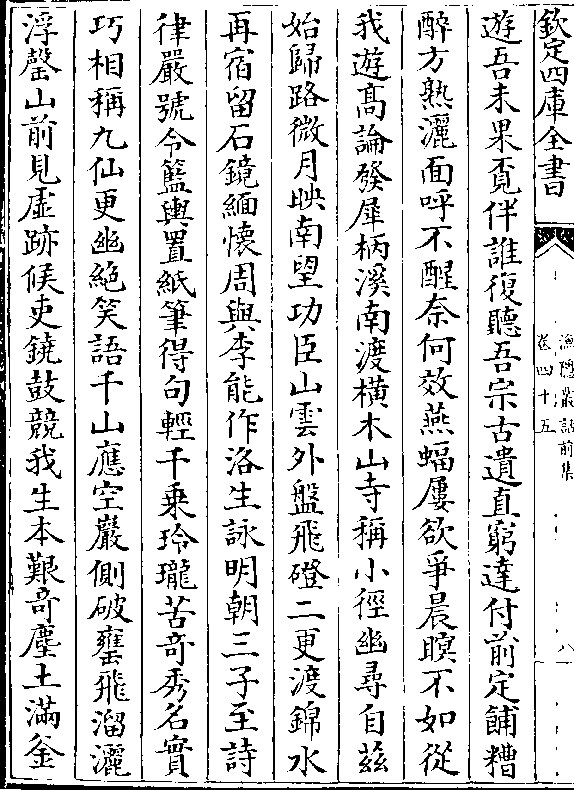 欽定四庫全書
漁隱叢話前集
卷四十五
八
遊吾未果覓伴誰復聽吾宗古遺直窮達付前定餔糟
醉方熟灑面呼不醒奈何效燕蝠屢欲爭晨暝不如從
我遊髙論發犀柄溪南渡橫木山寺稱小徑幽尋自兹
始歸路微月映南望功臣山雲外盤飛磴二更渡錦水
再宿留石鏡緬懷周與李能作洛生詠明朝三子至詩
律嚴號令籃輿置紙筆得句輕千乗玲瓏苦竒秀名實
巧相稱九仙更幽絶笑語千山應空巖側破甕飛溜灑
浮罄山前見虛跡候吏鐃鼓競我生本艱竒塵土滿釜